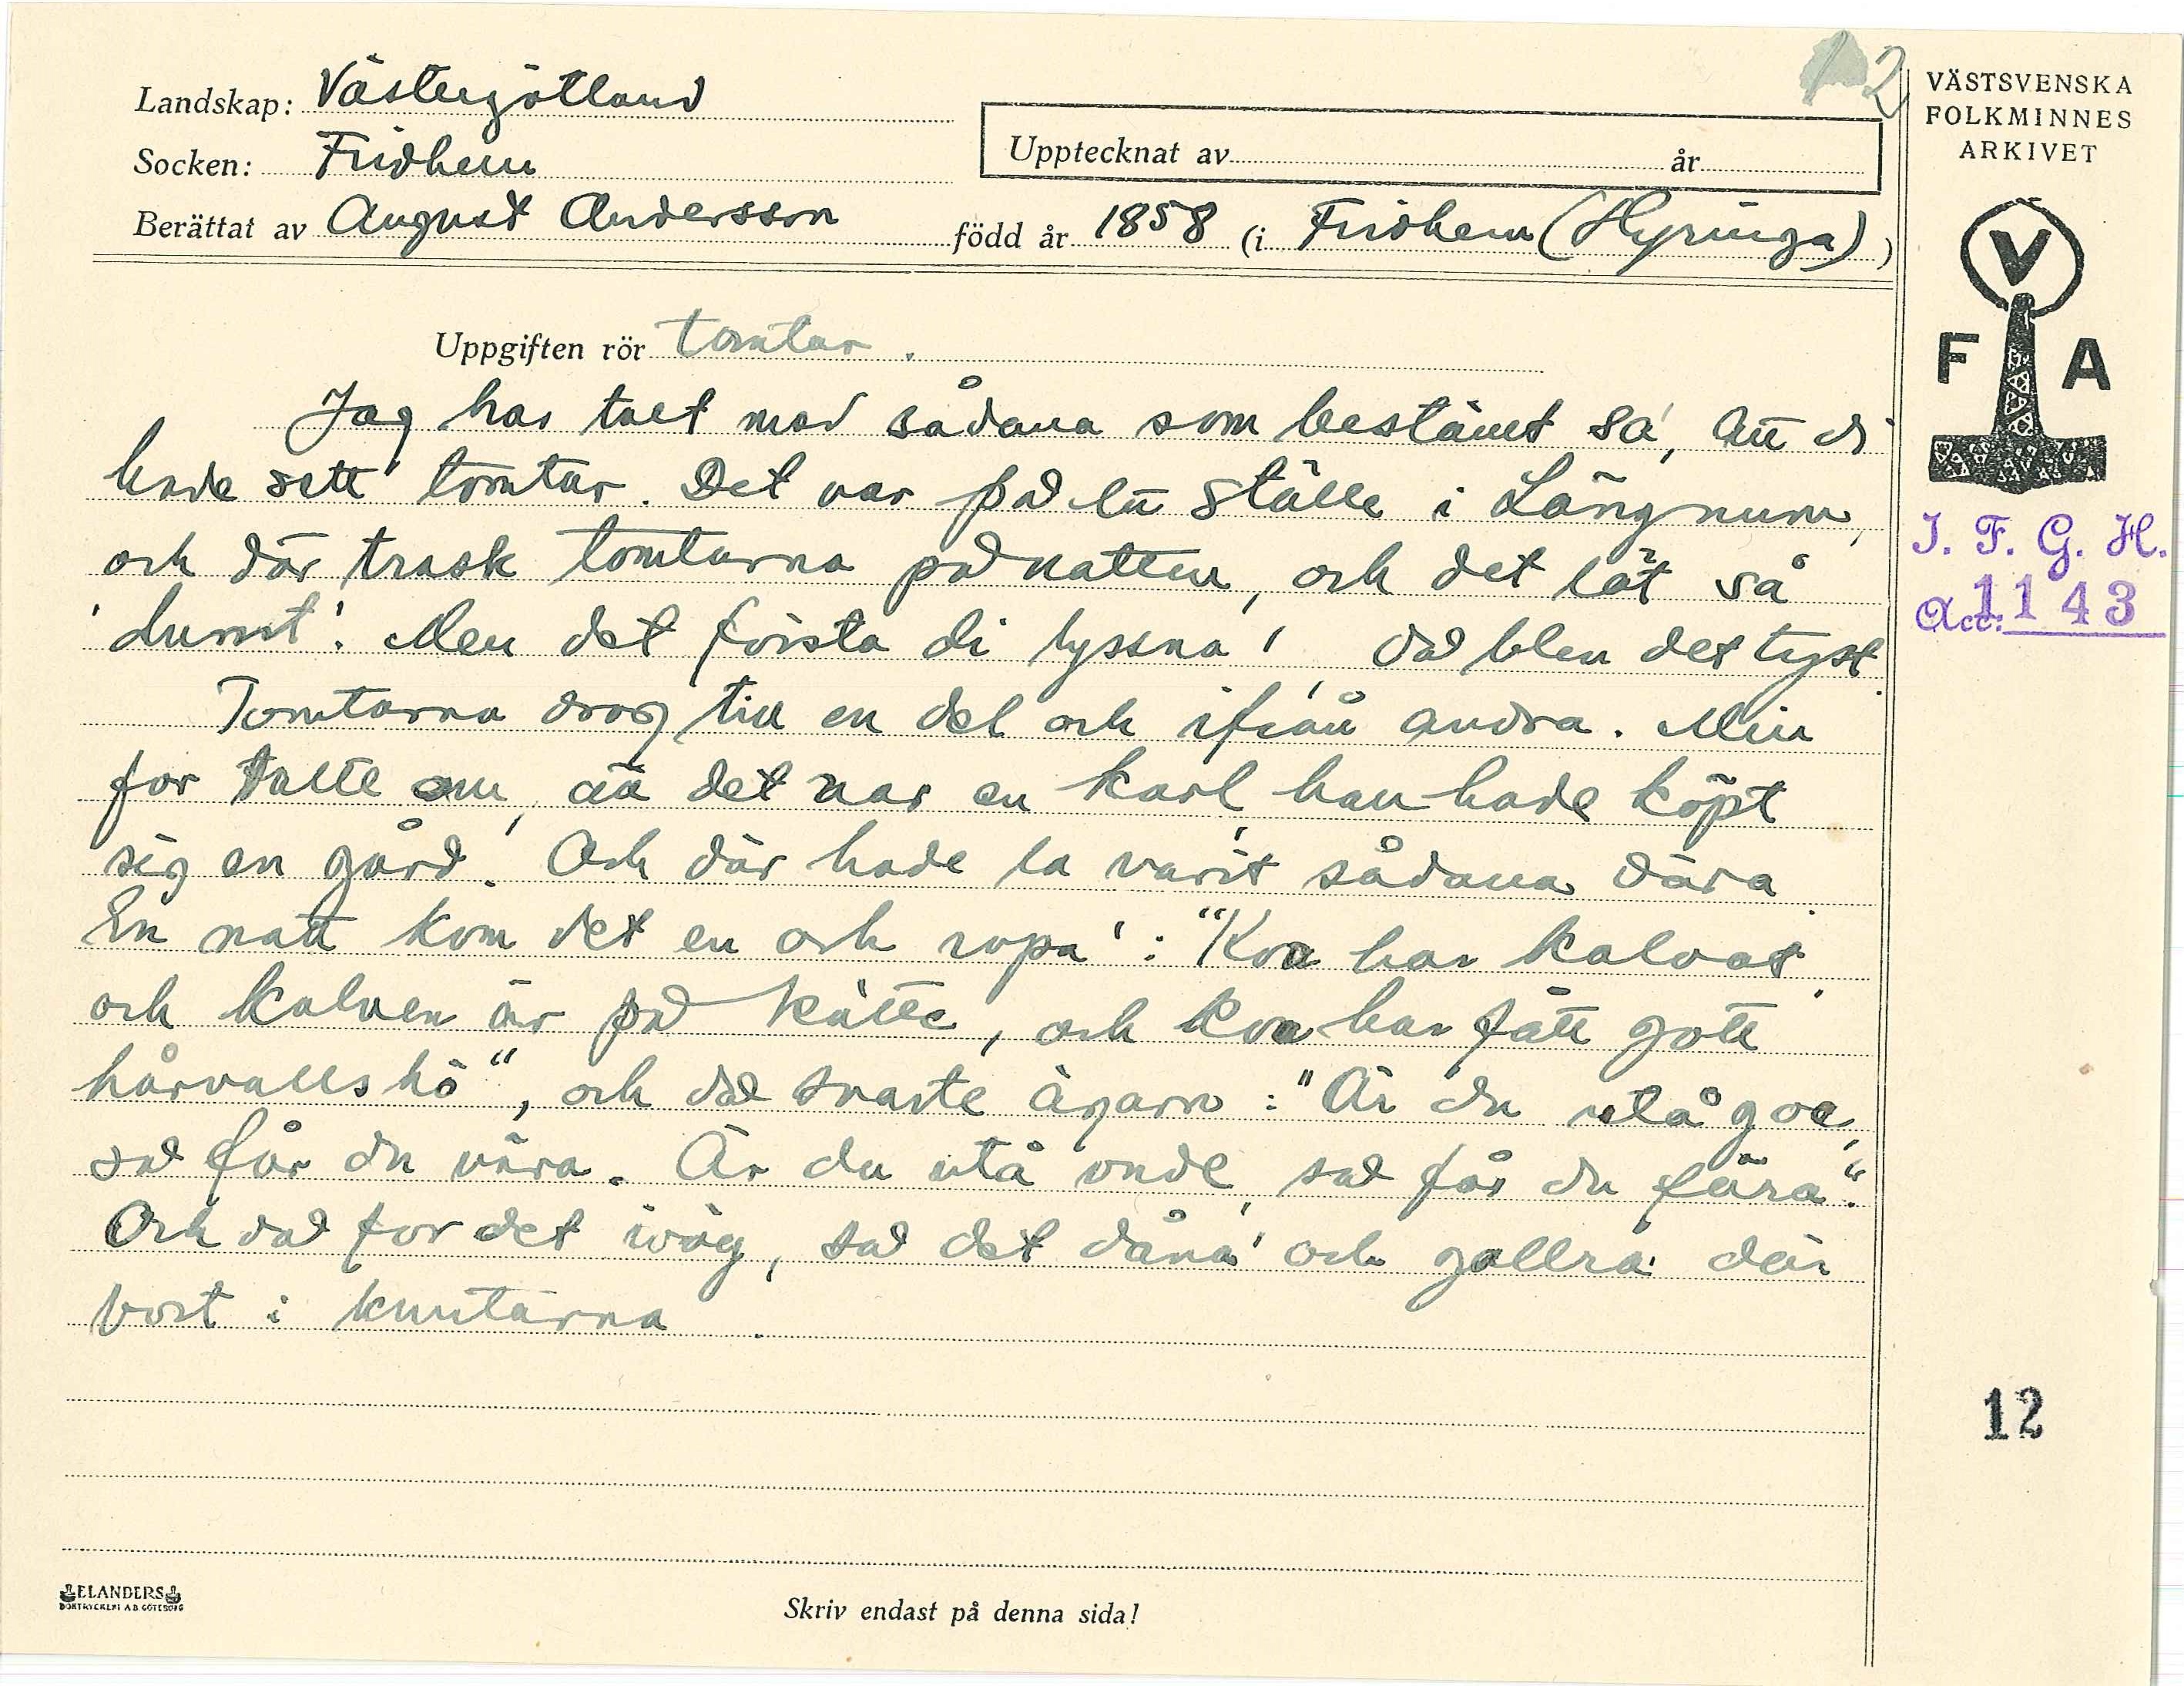 2
Landskap: Västergötland
Socken: Fridhem
Upptecknat av år
Berättat av August Andersson född år 1858 (i Fridhem (Hyringa))
VÄSTSVENSKA
FOLKMINNES
ARKIVET
V
F A
I. F. G. H.
Acc: 1143
Uppgiften rör tomtar.
Jag har talt med sådana som bestämt sa', att di
hade sett tomtar. Det var på ett ställe i Längnum,
och där trask tomtarna på natten, och det lät så
'dumt'. Men det första di lyssna', då blev det tyst.
Tomtarna drog till en del och ifrån andra. Min
far talte om, att det var en karl, han hade köpt
sig en gård. Och där hade la varit sådana dära.
En natt kom det en och ropa': "Koa har kalvat,
och kalven är på kätte, och koa har fått gott
hårvallshö", och då svarte ägarn: "Är du utå goe,
så får du vära. Är du utå onde, så får du fära".
Och då for det iväg, så det dåna' och gallra' där
bort i knutarna.
12
ELANDERS
BOKTRYCKERI A.B. GÖTEBORG
Skriv endast på denna sida!